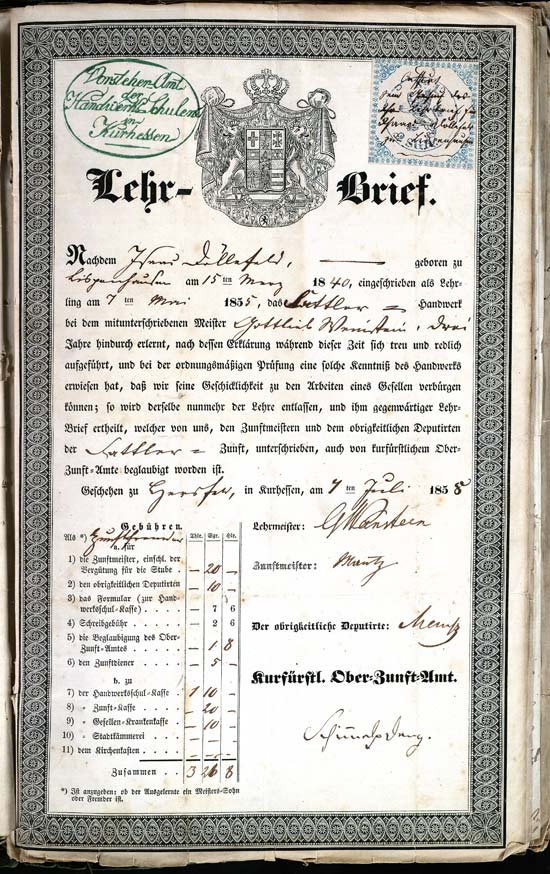 Vorsteher-Amt
der
Handwerks Schulen
in
Kurhessen
Lehr-Brief.
Nachdem Döllefeld, geboren zu
Lispenhausen am 15 ten März 1840, eingeschrieben als Lehr-
ling am 7 ten Mai 1855, das Sattler = Handwerk
bei dem mitunterschriebenen Meister Gottlieb Weinstein, drei
Jahre hindurch erlernt, nach dessen Erklärung während dieser Zeit sich treu und redlich
aufgeführt, und bei der ordnungsmäßigen Prüfung eine solche Kenntniß des Handwerks
erwiesen hat, daß wir seine Geschicklichkeit zu den Arbeiten eines Gesellen verbürgen
können; so wird derselbe nunmehr der Lehre entlassen, und ihm gegenwärtiger Lehr-
Brief ertheilt, welcher von uns, den Zunftmeistern und dem obrigkeitlichen Deputirten
der Sattler = Zunft, unterschrieben, auch von kurfürstlichem Ober-
Zunft-Amte beglaubigt worden ist.
Geschehen zu Hersfeld, in Kurhessen, am 7 ten Juli 1858
Gebühren.
Als *) Zunftfremder
a. für
Thlr. Sgr. Hlr.
1) die Zunftmeister, einschl. der
Vergütung für die Stube . — 20 —
2) den obrigkeitlichen Deputirten — 10 —
3) das Formular (zur Hand-
werksschul-Kasse) . . . . — 7 6
4) Schreibgebühr . . . . — 2 6
5) die Beglaubigung des Ober-
Zunft-Amtes . . . . . — 1 8
6) den Zunftdiener . . . . — 5 —
b. zu
7) der Handwerksschul-Kasse . 1 10 —
8) „ Zunft-Kasse . . . . — 20 —
9) „ Gesellen-Krankenkasse . — 10 —
10) „ Stadtkämmerei . . . . — — —
11) dem Kirchenkasten . . . — — —
Zusammen . 3 26 8
*) Ist anzugeben: ob der Ausgelernte ein Meisters-Sohn
oder Fremder ist.
Lehrmeister: GWeinstein
Zunftmeister:
Der obrigkeitliche Deputirte:
Kurfürstl. Ober-Zunft-Amt.